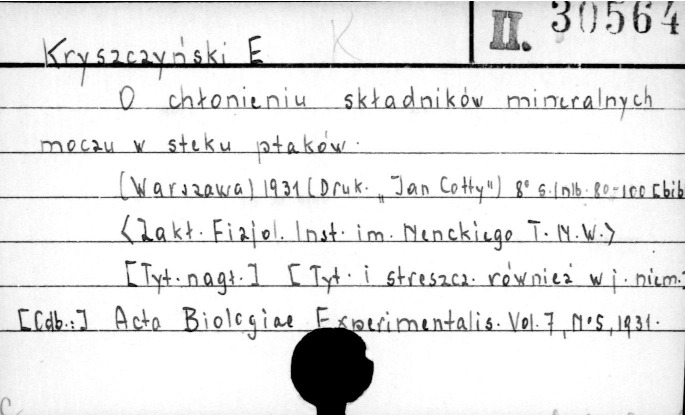 II. 30564
Kryszczyński E K
O chłonieniu składników mineralnych
moczu w steku ptaków.
(Warszawa) 1931 (Druk. „Jan Cotty") 8° s. 1 nlb. 80-100 [bib
<Zakł. Fizjol. Inst. im. Nenckiego T.N.W.>
[Tyt. nagł.] [Tyt. i streszcz. również w j. niem.]
[Odb.:] Acta Biologiae Experimentalis. Vol. 7, N°5, 1931.